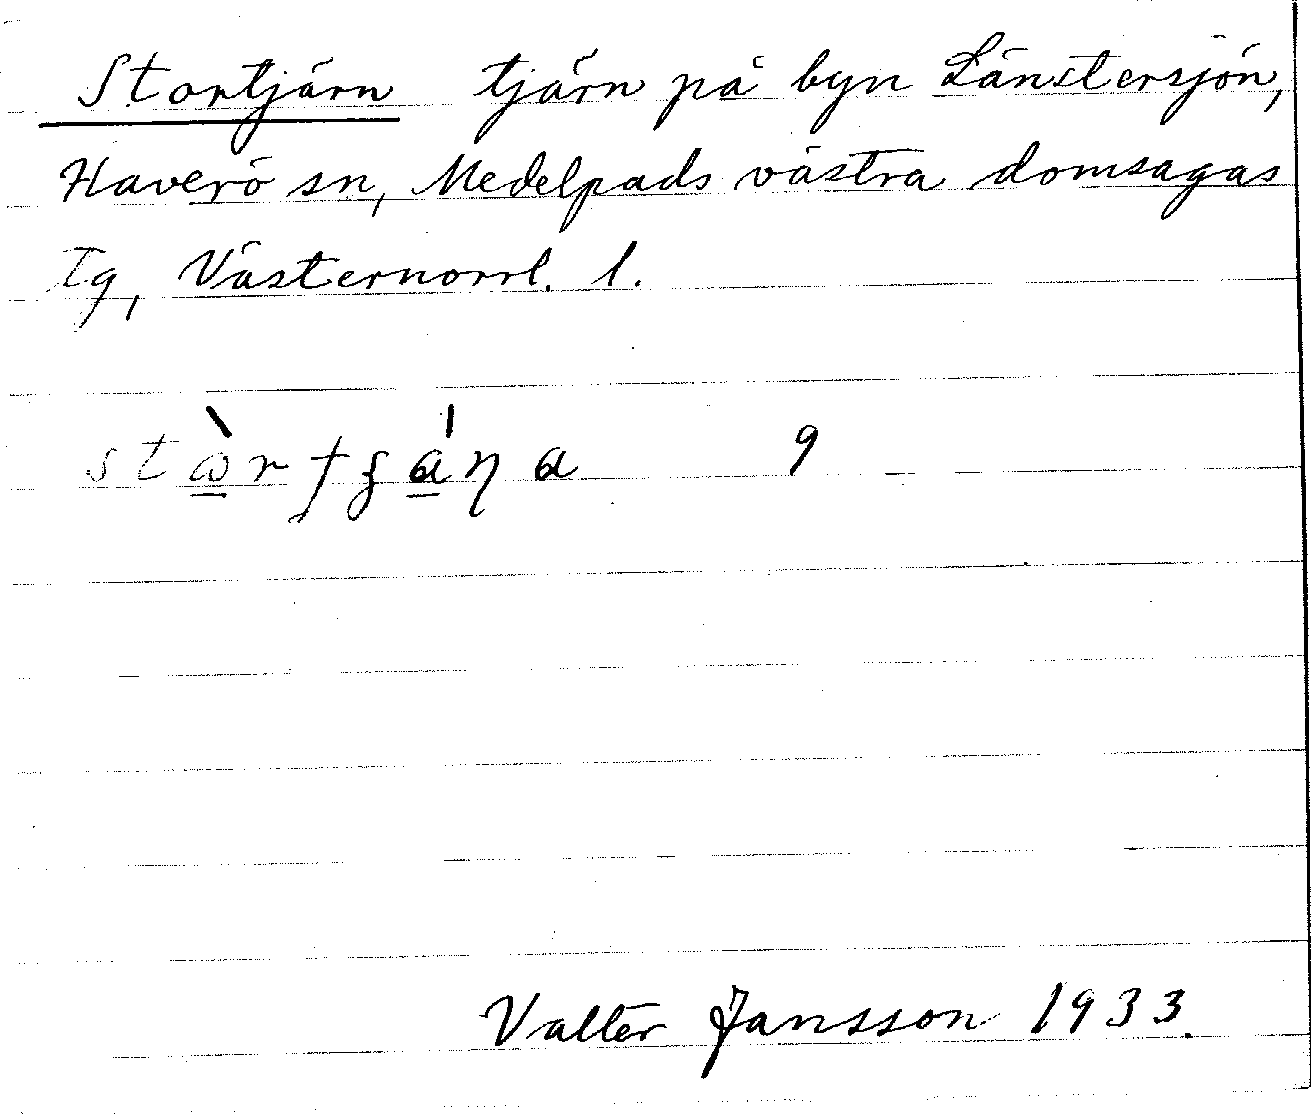 Stortjärn tjärn på byn Länstersjön,
Haverö sn, Medelpads västra domsagas
Tg, Västernorrl. l.
9
Valter Jansson 1933.